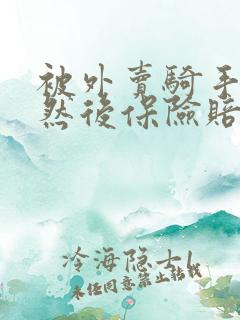 被外賣騎手
然後保險賠
冷海隐士l
未经同意禁止转载